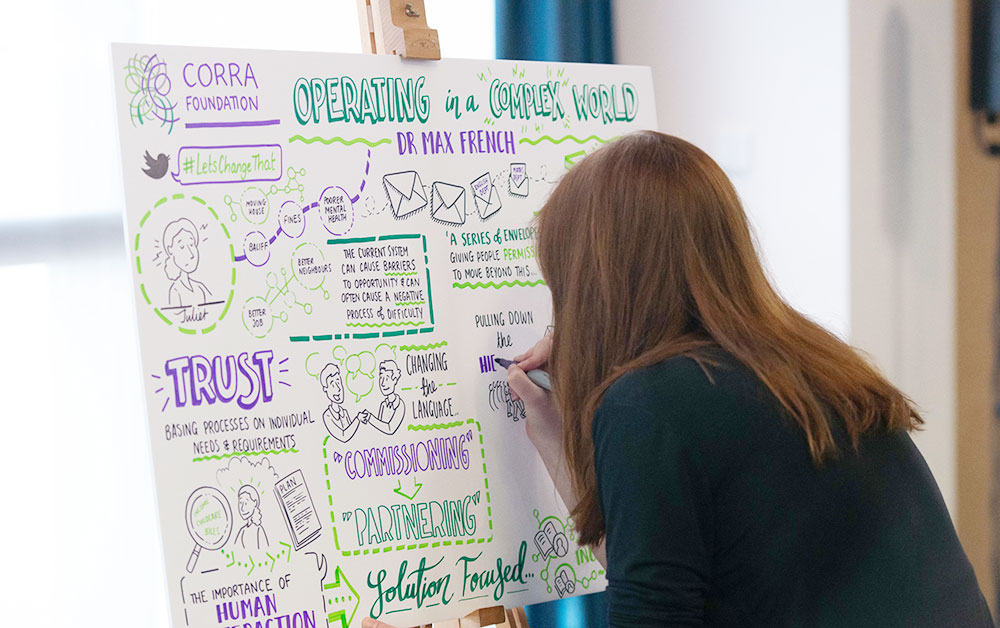 CORRA
FOUNDATION
OPERATING in a COMPLEX WORLD
DR MAX FRENCH
#LetsChangeThat
MOVING
HOUSE
FINES
POORER
MENTAL
HEALTH
BAILIFF
BETTER
NEIGHBOURS
BETTER
JOB
Juliet
THE CURRENT SYSTEM
CAN CAUSE BARRIERS
TO OPPORTUNITY & CAN
OFTEN CAUSE A NEGATIVE
PROCESS OF DIFFICULTY
'A SERIES OF
GIVING PEOPLE
TO MOVE BEYOND THIS...
PULLING DOWN
the
TRUST
BASING PROCESSES ON INDIVIDUAL
NEEDS & REQUIREMENTS
CHANGING
the
LANGUAGE...
"COMMISSIONING"
"PARTNERING"
INCOME
CHILDCARE
BILLS
PLAN
THE IMPORTANCE OF
HUMAN
Solution Focused...